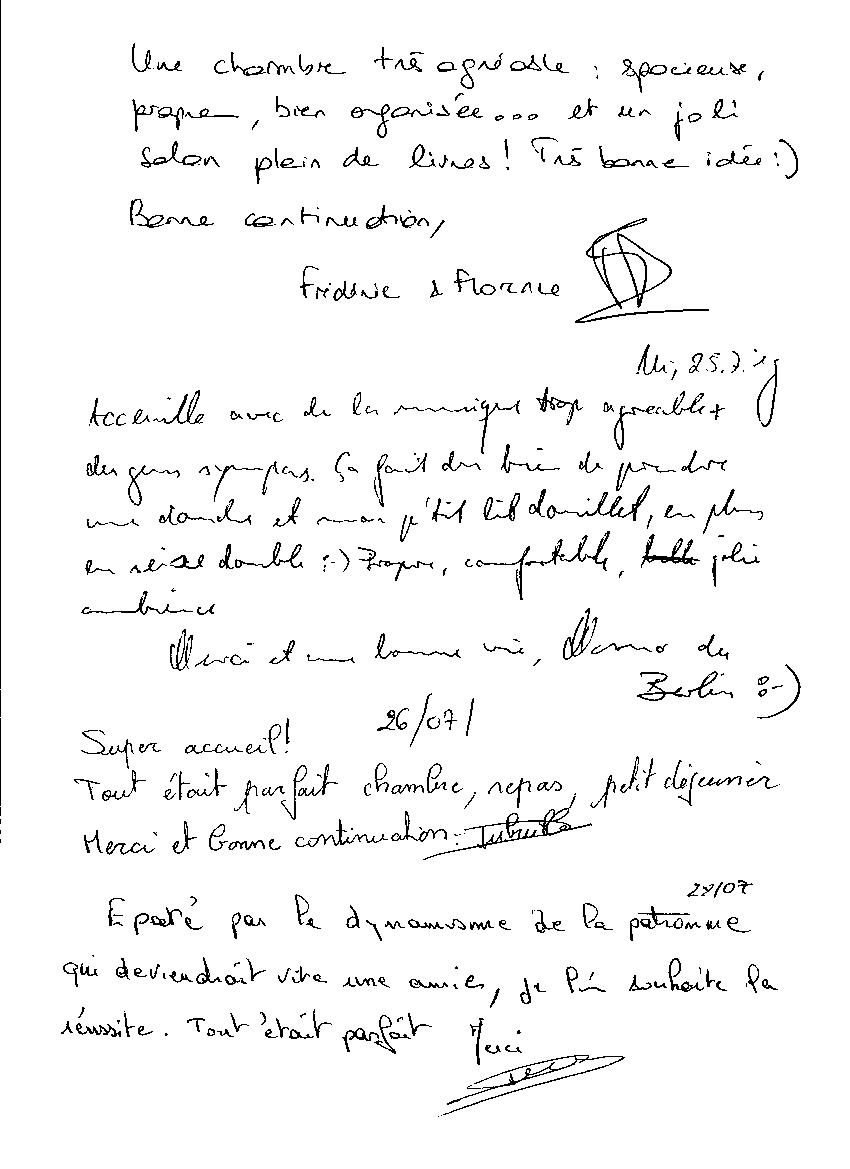 Une chambre très agréable : spacieuse,
propre, bien organisée... et un joli
salon plein de livres ! Très bonne idée :)
Bonne continuation,
Frédéric & Florence
25.7.
Acceuille avec de la musique trop agreable +
des gens sympas. Ça fait du bien de prendre
une douche et mon p'tit lit douillet, en plus
en double :-) Propre, comfortable, jolie
ambience
Merci et une bonne vie, de
Berlin 8-)
26/07/
Super accueil!
Tout était parfait chambre, repas, petit déjeunèr
Merci et bonne continuation.
29/07
Epaté par le dynamisme de la patronne
qui deviendrait vite une amie, je lui souhaite la
réussite. Tout était parfait Merci